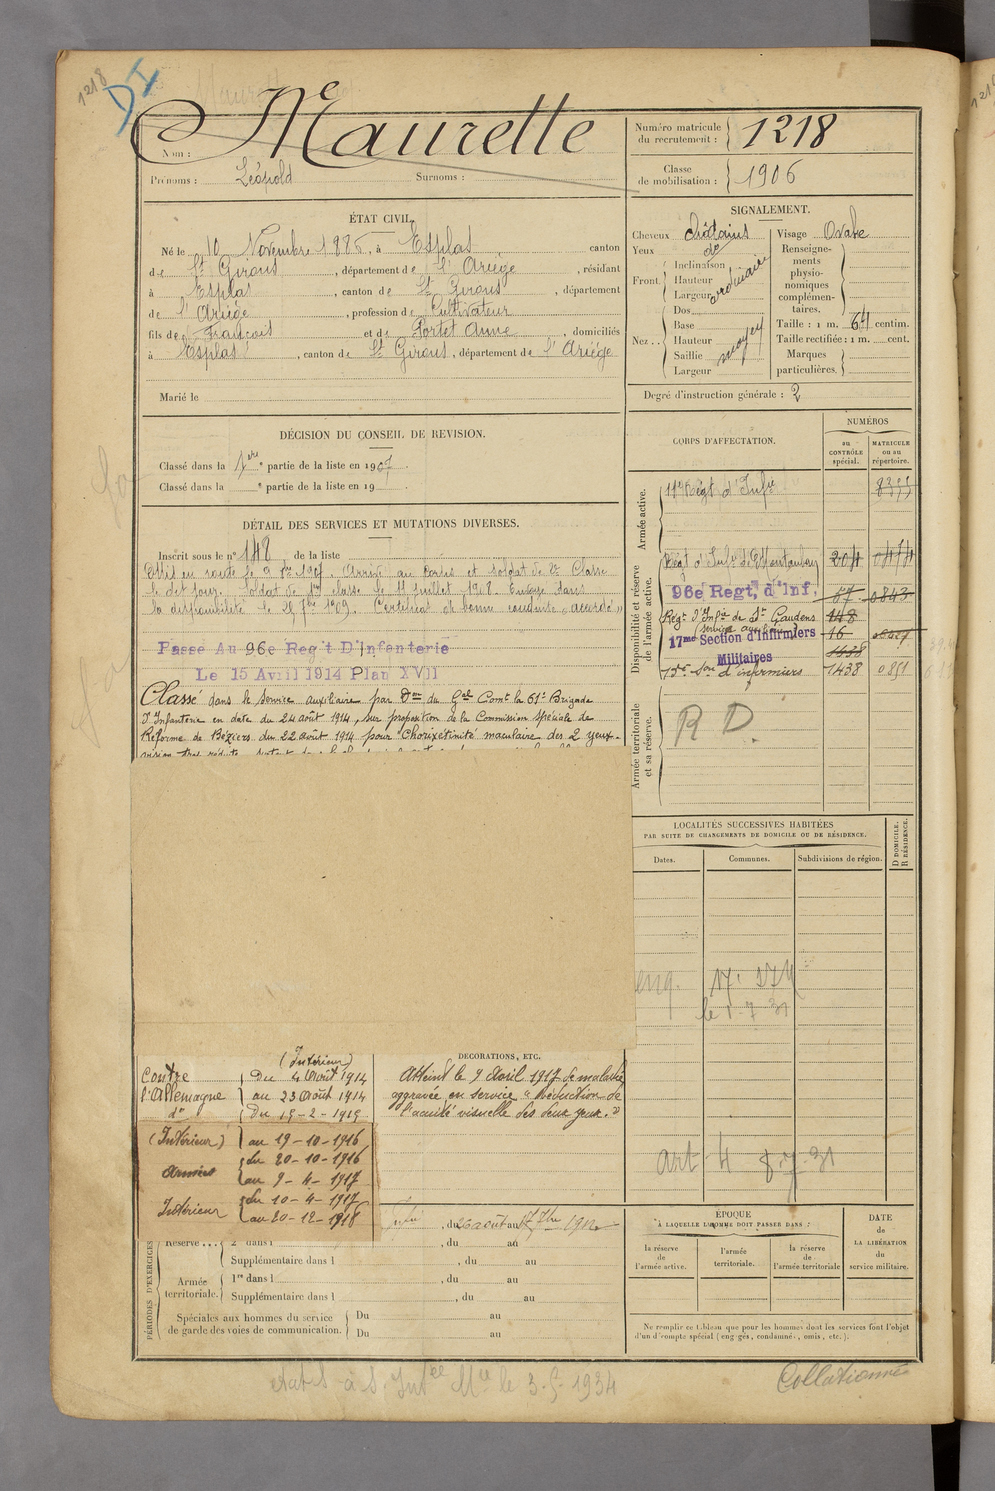 1218
DI
Maurette
Nom :
Prénoms : Léopold Surnoms :
Numéro matricule du recrutement : 1218
Classe de mobilisation : 1906
ÉTAT CIVIL.
Né le 10 Novembre 1886, à Esplas canton
de St Girons, département de l'Ariège, résidant
à Esplas, canton de St Girons, département
de l'Ariège, profession de Cultivateur
fils de François et de Portet Anne, domiciliés
à Esplas, canton de St Girons, département de l'Ariège
Marié le
SIGNALEMENT.
Cheveux châtains
Yeux do
Front Inclinaison
Hauteur
Largeur
ordinaire
Nez .. Dos
Base
Hauteur
Saillie
Largeur
moyen
Visage Ovale
Renseignements physionomiques complémentaires.
Taille : 1 m. 64 centim.
Taille rectifiée : 1 m. cent.
Marques particulières.
Degré d'instruction générale : 2
DÉCISION DU CONSEIL DE REVISION.
Classé dans la 1ere partie de la liste en 1907.
Classé dans la e partie de la liste en 19
DÉTAIL DES SERVICES ET MUTATIONS DIVERSES.
Inscrit sous le n° 148 de la liste
Mis en route le 9 8bre 1907. Arrivé au Corps et soldat de 2e Classe
le dit jour. Soldat de 1re classe le 11 Juillet 1908. Envoyé dans
la disponibilité le 25 7bre 1909. Certificat de bonne conduite "accordé"
Passé Au 96e Reg't D'Infanterie
Le 15 Avril 1914 Plan XVII
Classé dans le Service auxiliaire par Don du Gal Comt la 61e Brigade
d'Infanterie en date du 24 août 1914, sur proposition de la Commission Spéciale de
Réforme de Béziers du 22 août 1914 pour "Chorixétinité maculaire des 2 yeux-
CORPS D'AFFECTATION.
NUMÉROS
au CONTRÔLE spécial.
MATRICULE ou au répertoire.
Armée active.
Régt d'Infie
Disponibilité et réserve de l'armée active.
Régt d'Infie de Montauban 204 0474
96e Regt, d'Inf. 67 0843
Régt d'Infie de St Gaudens 148
(service auxiliaire)
17me Section d'Infirmiers Militaires 16
1638
Son d'infirmiers 1438 0851
Armée territoriale et sa réserve.
R D.
LOCALITÉS SUCCESSIVES HABITÉES
PAR SUITE DE CHANGEMENTS DE DOMICILE OU DE RÉSIDENCE.
Dates.
Communes.
Subdivisions de région.
D DOMICILE.
R RÉSIDENCE.
le 1-7 31
art 4 8-7-31
(Intérieur)
Contre Du 4 Août 1914
l'Allemagne au 23 Août 1914
do Du 19-2-1915
(Intérieur) au 19-10-1916
Armées du 20-10-1916
au 9-4-1917
Intérieur du 10-4-1917
au 20-12-1918
DÉCORATIONS, ETC.
Atteint le 9 Avril 1917 de maladie
aggravée en service "Réduction de
l'acuité visuelle des deux yeux."
, du 26 août au 7bre 1912
PÉRIODES D'EXERCICES
Réserve ... 2e dans l , du au
Supplémentaire dans l , du au
Armée territoriale. 1re dans l , du au
Supplémentaire dans l , du au
Spéciales aux hommes du service de garde des voies de communication. Du au
Du au
ÉPOQUE
À LAQUELLE L'HOMME DOIT PASSER DANS :
la réserve de l'armée active.
l'armée territoriale.
la réserve de l'armée territoriale
DATE de LA LIBÉRATION du service militaire.
Ne remplir ce tableau que pour les hommes dont les services font l'objet
d'un décompte spécial (engagés, condamnés, omis, etc.).
le 3-5-1934
Collationné